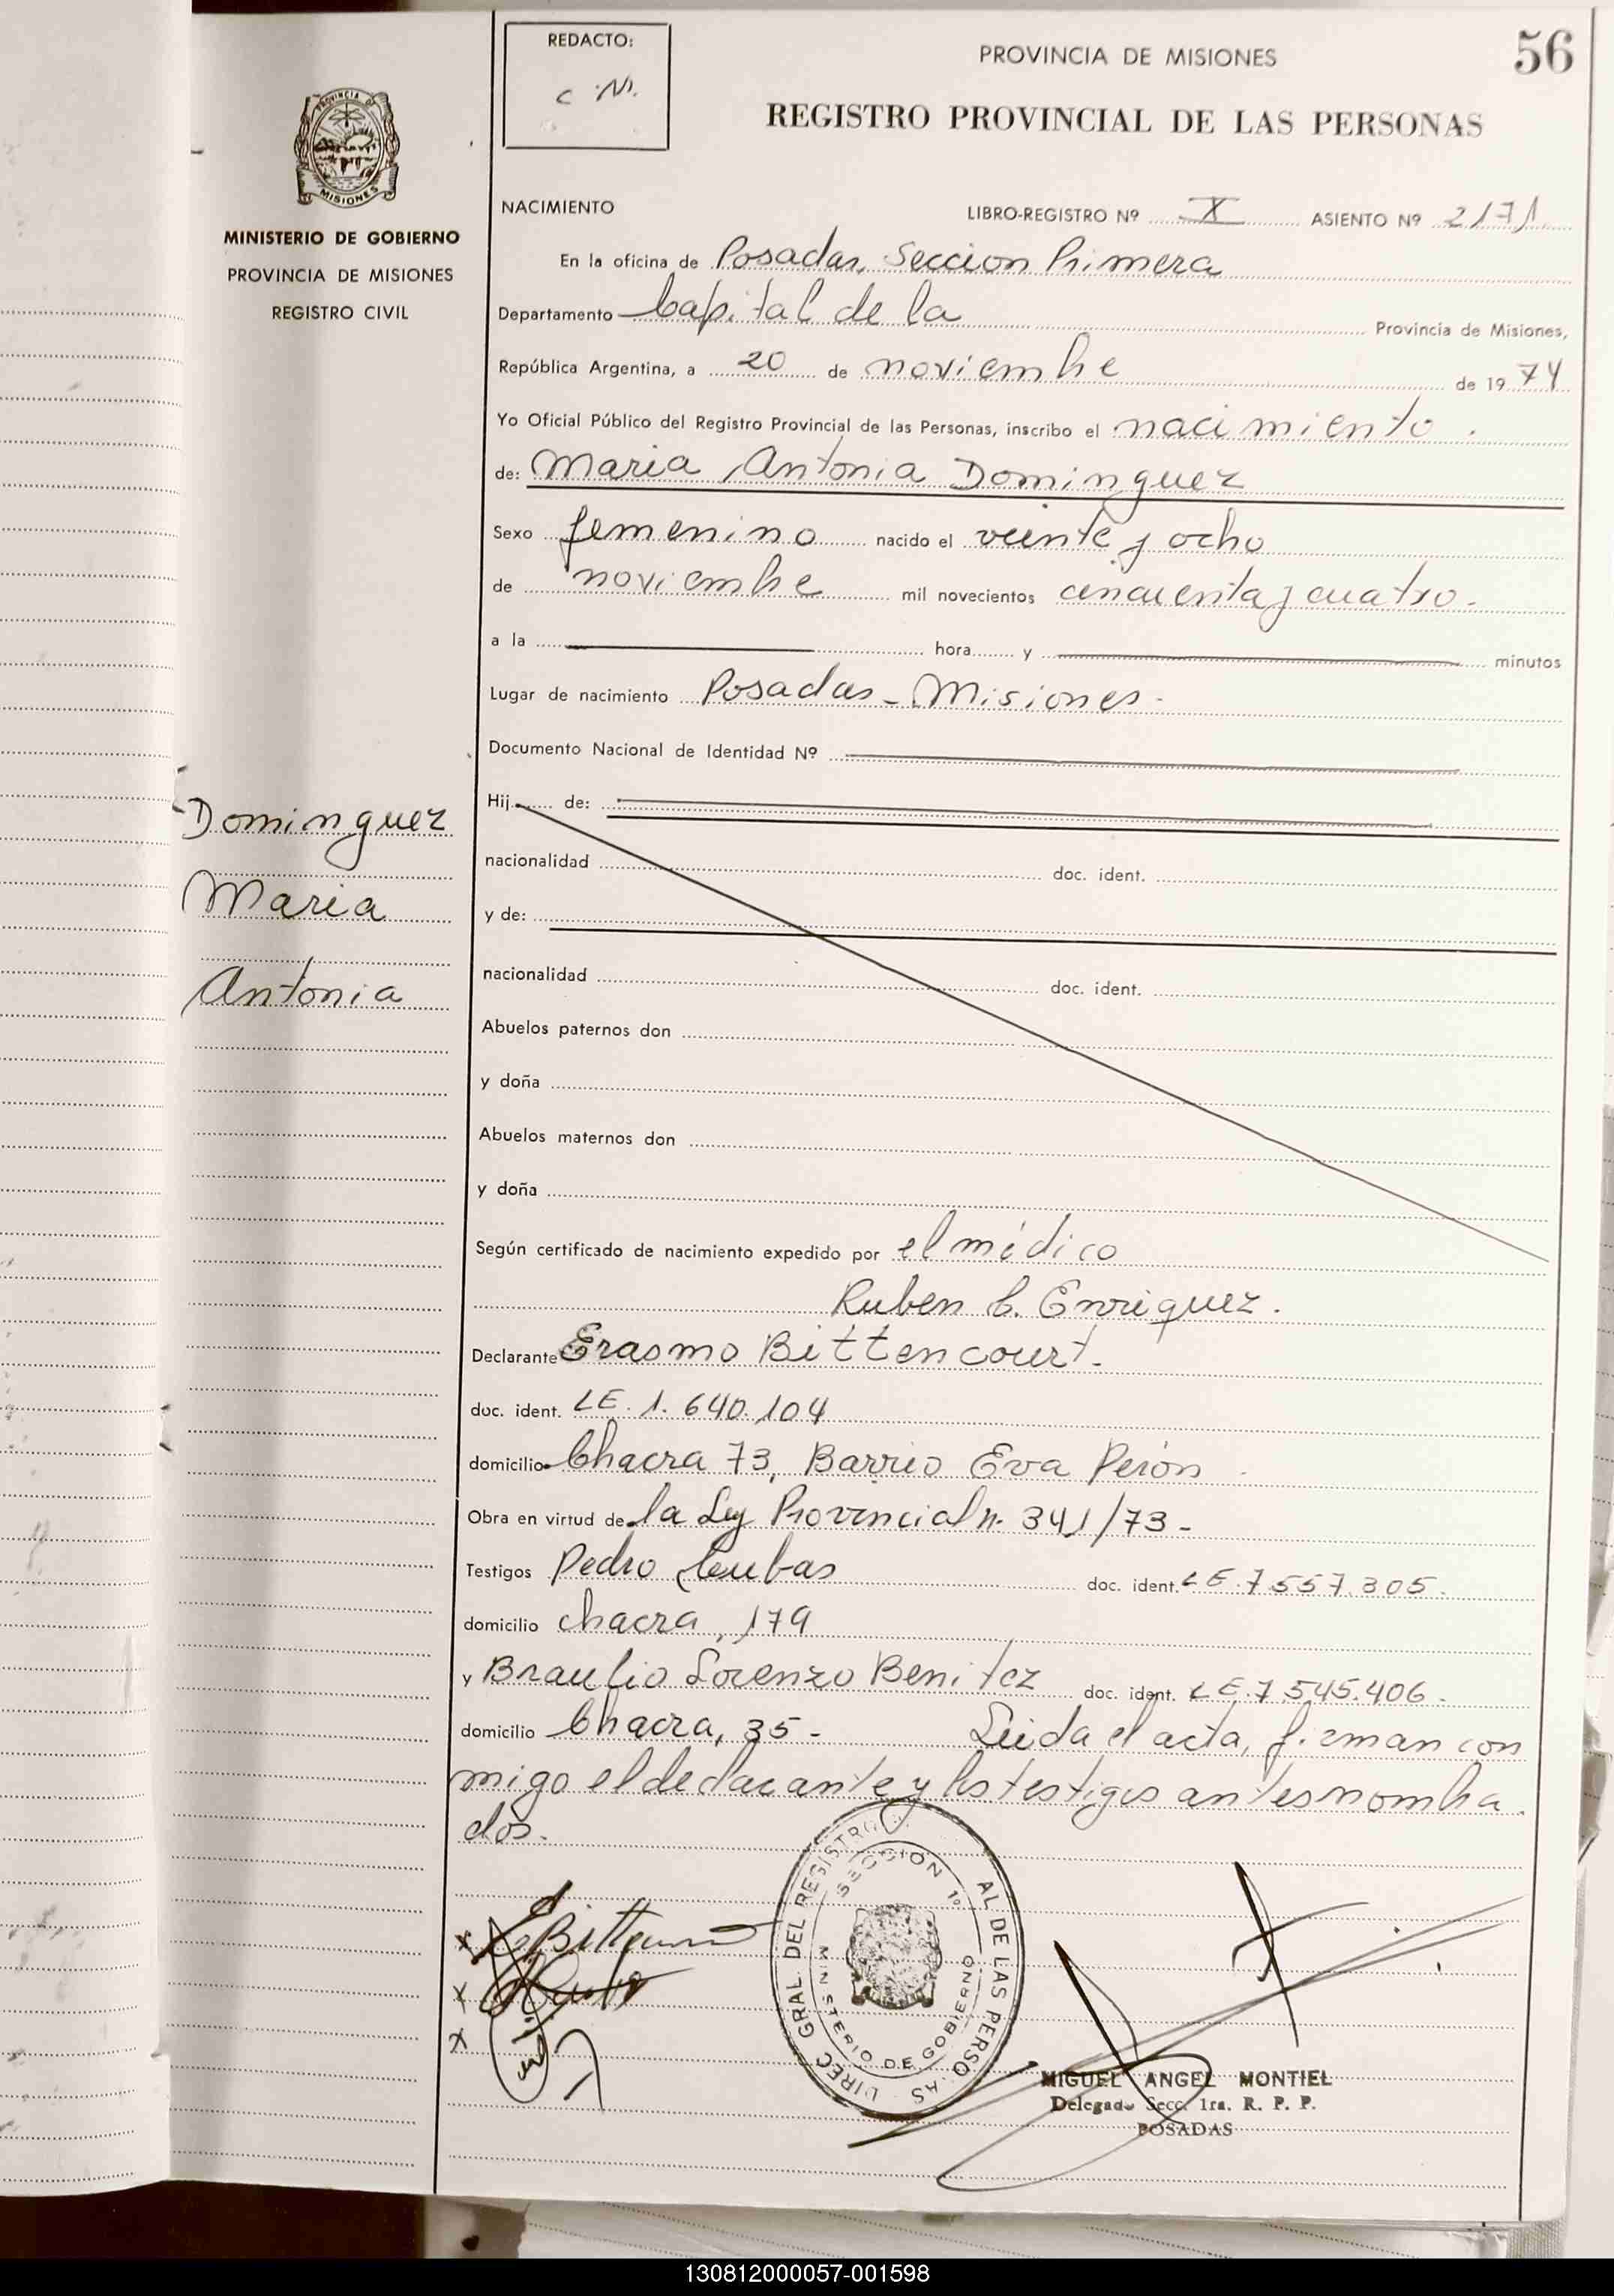 REDACTO:
C.M.
PROVINCIA DE MISIONES
56
REGISTRO PROVINCIAL DE LAS PERSONAS
PROVINCIA DE
MISIONES
MINISTERIO DE GOBIERNO
PROVINCIA DE MISIONES
REGISTRO CIVIL
NACIMIENTO LIBRO-REGISTRO Nº X ASIENTO Nº 2171
En la oficina de Posadas, Seccion Primera
Departamento Capital de la Provincia de Misiones,
República Argentina, a 20 de noviembre de 19 74
Yo Oficial Público del Registro Provincial de las Personas, inscribo el nacimiento.
de: Maria Antonia Dominguez
Sexo femenino nacido el veinte y ocho
de noviembre mil novecientos cincuenta y cuatro.
a la hora y minutos
Lugar de nacimiento Posadas - Misiones.
Documento Nacional de Identidad Nº
Dominguez
Maria
Antonia
Hij de:
nacionalidad doc. ident.
y de:
nacionalidad doc. ident.
Abuelos paternos don
y doña
Abuelos maternos don
y doña
Según certificado de nacimiento expedido por el médico
Ruben C. Enriquez.
Declarante Erasmo Bittencourt.
doc. ident. LE. 1. 640. 104
domicilio Chacra 73, Barrio Eva Perón
Obra en virtud de la Ley Provincial n. 341/73 -
Testigos Pedro Cubas doc. ident. LE. 7.557.305.
domicilio chacra, 179
y Braulio Lorenzo Benitez doc. ident. LE. 7.545.406.
domicilio Chacra, 35 - Leida el acta, firman con
migo el declarante y los testigos antes nombra
dos.
DIREC GRAL DEL REGISTRO AL DE LAS PERSO AS
SECCION 1º
MINISTERIO DE GOBIERNO
MIGUEL ANGEL MONTIEL
Delegado Secc. 1ra. R. P. P.
POSADAS
130812000057-001598